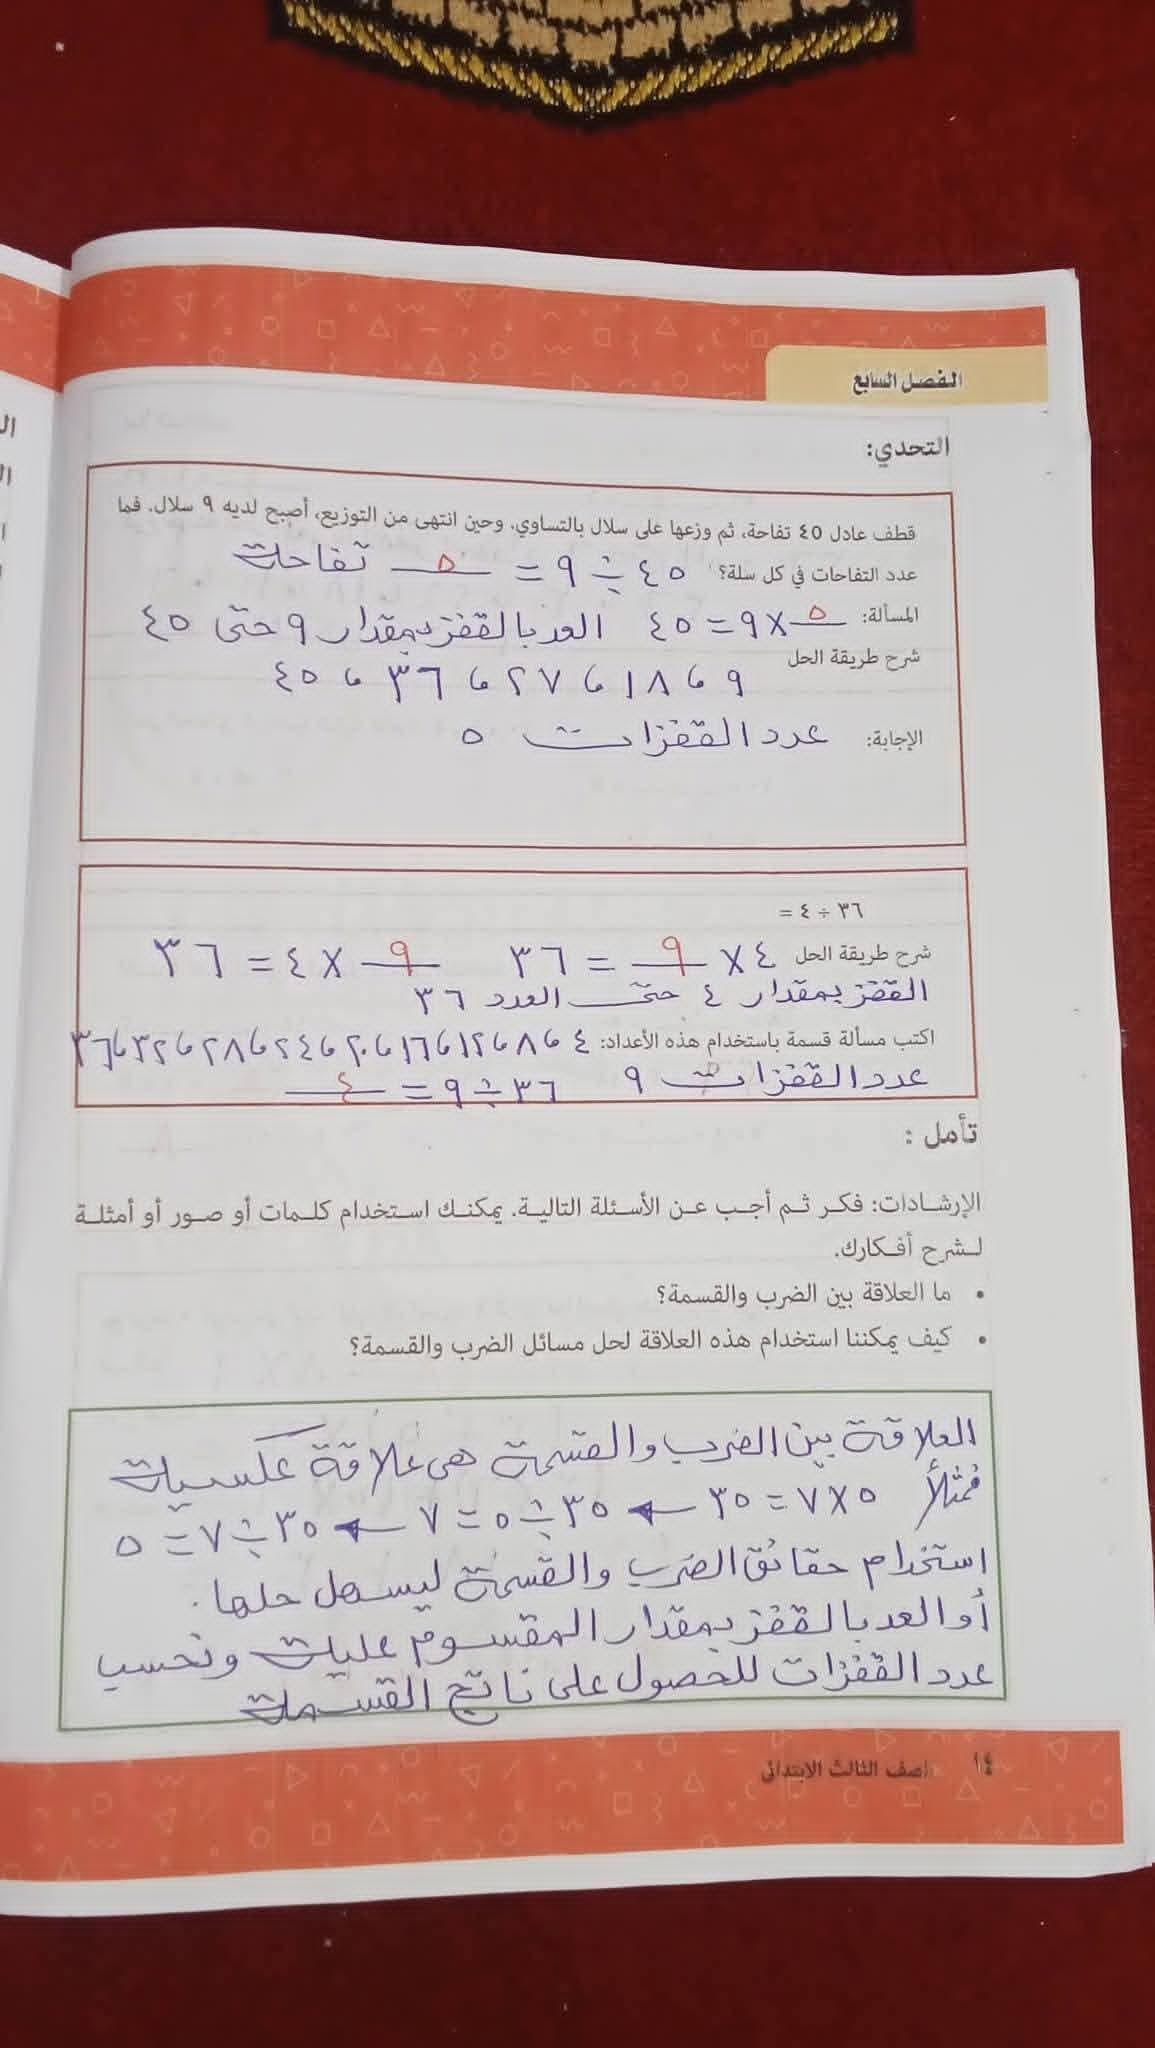 الفصل السابع
التحدي:
قطف عادل ٤٥ تفاحة، ثم وزعها على سلال بالتساوي. وحين انتهى من التوزيع، أصبح لديه ٩ سلال. فما
عدد التفاحات في كل سلة؟ ٤٥ ÷ ٩ = ٥ تفاحات
المسألة: ٥ × ٩ = ٤٥ العد بالقفز بمقدار ٩ حتى ٤٥
شرح طريقة الحل
٩ ، ١٨ ، ٢٧ ، ٣٦ ، ٤٥
الإجابة: عدد القفزات ٥
٣٦ ÷ ٤ =
شرح طريقة الحل ٤ × ٩ = ٣٦ ٩ × ٤ = ٣٦
القفز بمقدار ٤ حتى العدد ٣٦
اكتب مسألة قسمة باستخدام هذه الأعداد: ٤ ، ٨ ، ١٢ ، ١٦ ، ٢٠ ، ٢٤ ، ٢٨ ، ٣٢ ، ٣٦
عدد القفزات ٩ ٣٦ ÷ ٩ = ٤
تأمل :
الإرشادات: فكر ثم أجب عن الأسئلة التالية. يمكنك استخدام كلمات أو صور أو أمثلة
لشرح أفكارك.
• ما العلاقة بين الضرب والقسمة؟
• كيف يمكننا استخدام هذه العلاقة لحل مسائل الضرب والقسمة؟
العلاقة بين الضرب والقسمة هى علاقة عكسية
فمثلاً ٥ × ٧ = ٣٥ ← ٣٥ ÷ ٥ = ٧ ← ٣٥ ÷ ٧ = ٥
استخدام حقائق الضرب والقسمة ليسهل حلها.
أو العد بالقفز بمقدار المقسوم عليه ونحسب
عدد القفزات للحصول على ناتج القسمة
١٤ الصف الثالث الابتدائى